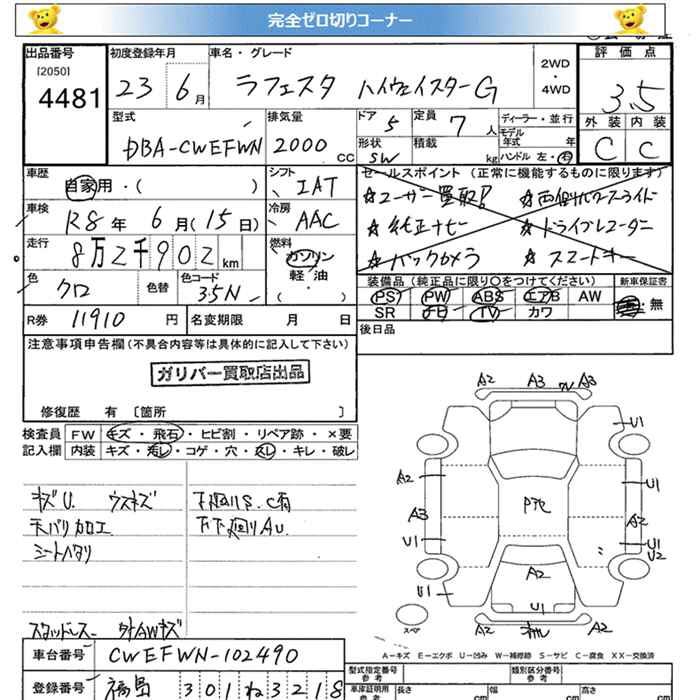 完全ゼロ切りコーナー
出品番号 初度登録年月 車名・グレード 評価点
[2050]
4481 23 6月 ラフェスタ ハイウェイスターG 2WD・4WD 3.5
型式 排気量 ドア 定員 ディーラー・並行 外装 内装
DBA-CWEFWN 2000 CC 5 7人 モデル年式 年 C C
形状 SW 積載 kg ハンドル 左・右
車歴 自家用・( ) シフト IAT セールスポイント(正常に機能するものに限ります)
車検 R8年 6月(15日) 冷房 AAC
☆ユーザー買取! ☆両側パワースライド
☆純正ナビ ☆ドライブレコーダー
☆バックカメラ ☆スマートキー
走行 8万2千902km 燃料 ガソリン 軽油 ( ・ )
色 クロ 色替 色コード 35N
装備品(純正品に限り○をつけてください) 新車保証書
PS PW ABS エアB AW 有・無
SR ナビ TV カワ
R券 11910円 名変期限 月 日
後日品
注意事項申告欄(不具合内容等は具体的に記入して下さい)
ガリバー買取店出品
修復歴 有 〔箇所 〕
検査員 FW キズ・飛石・ヒビ割・リペア跡・×要
記入欄 内装 キズ・汚レ・コゲ・穴・スレ・キレ・破レ
キズU. ウスキズ 下廻りS.C有
天バリ加工 下廻りAU.
シートハタリ
スタッドレス タイヤAWキズ
A2 A3 A3
U1
A2 U1
A3 Pで A2
U1 U1
U2
A2
U1 U1
スペア A2 A2
A-キズ E-エクボ U-凹み W-補修跡 S-サビ C-腐食 XX-交換済
車台番号 CWEFWN-102490
登録番号 福島 301 ね 3218
型式指定番号 参考 類別区分番号 参考
車庫証明用 参考 長さ 幅 高さ
cm cm cm